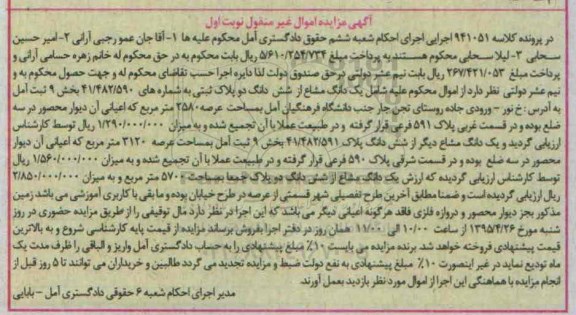 آگهی مزایده اموال غیر منقول نوبت اول
در پرونده کلاسه ۹۴۱۰۵۱ اجرایی اجرای احکام شعبه ششم حقوق دادگستری آمل محکوم علیه ها ۱- آقا جان عمو رجبی آرانی ۲-امیر حسین
سحابی ۳- لیلا سحابی محکوم هستند به پرداخت مبلغ ۵/۶۱۰/۲۵۴/۷۳۴ ریال بابت محکوم به در حق محکوم له خانم زهره حسامی آرانی و
پرداخت مبلغ ۲۶۷/۴۲۱/۰۵۳ ریال بابت نیم عشر دولتی در حق صندوق دولت لذا دایره اجرا حسب تقاضای محکوم له و جهت حصول محکوم به و
نیم عشر دولتی نظر دارد از اموال محکوم علیه شامل یک دانگ مشاع از شش دانگ دو پلاک ثبتی به شماره های ۴۱/۴۸۲/۵۹۰ بخش ۹ ثبت آمل
به آدرس : خ نور - ورودی جاده روستای تجن جار جنب دانشگاه فرهنگیان آمل بمساحت عرصه ۲۵۸۰ متر مربع که اعیانی آن دیوار محصور در سه
ضلع بوده و در قسمت غربی پلاک ۵۹۱ فرعی قرار گرفته و در طبیعت عملا با آن تجمیع شده و به میزان ۱/۲۹۰/۰۰۰/۰۰۰ ریال توسط کارشناس
ارزیابی گردید و یک دانگ مشاع دیگر از شش دانگ پلاک ۴۱/۴۸۲/۵۹۱ بخش ۹ ثبت آمل بمساحت عرصه ۳۱۲۰ متر مربع که اعیانی آن دیوار
محصور در سه ضلع بوده و در قسمت شرقی پلاک ۵۹۰ فرعی قرار گرفته و در طبیعت عملا با آن تجمیع شده و به میزان ۱/۵۶۰/۰۰۰/۰۰۰ ریال
توسط کارشناس ارزیابی گردیده که ارزش یک دانگ مشاع از شش دانگ دو پلاک جمعا بمساحت ۵۷۰۰ متر مربع و به میزان ۲/۸۵۰/۰۰۰/۰۰۰
ریال ارزیابی گردیده است و ضمنا مطابق آخرین طرح تفصیلی شهر قسمتی از عرصه در طرح خیابان بوده و ما بقی با کاربری آموزشی می باشد زمین
مذکور بجز دیوار محصور و دروازه فلزی فاقد هرگونه اعیانی دیگر می باشد که این اجرا در نظر دارد مال توقیفی را از طریق مزایده حضوری در روز
شنبه مورخ ۱۳۹۵/۴/۲۶ از ساعت ۱۰/۰۰ الی ۱۱/۰۰ همان روز در دفتر اجرا بفروش برساند مزایده از قیمت پایه کارشناسی شروع و به بالاترین
قیمت پیشنهادی فروخته خواهد شد. برنده مزایده می بایست ۱۰٪ مبلغ پیشنهادی را به حساب دادگستری آمل واریز و الباقی را ظرف مدت یک
ماه تودیع نماید در غیر اینصورت ۱۰٪ مبلغ پیشنهادی به نفع دولت ضبط و مزایده تجدید می گردد طالبین و خریداران می توانند تا ۵ روز قبل از
انجام مزایده با هماهنگی این اجرا از اموال مورد نظر بازدید بعمل آورند.
مدیر اجرای احکام شعبه ۶ حقوقی دادگستری آمل - بابایی